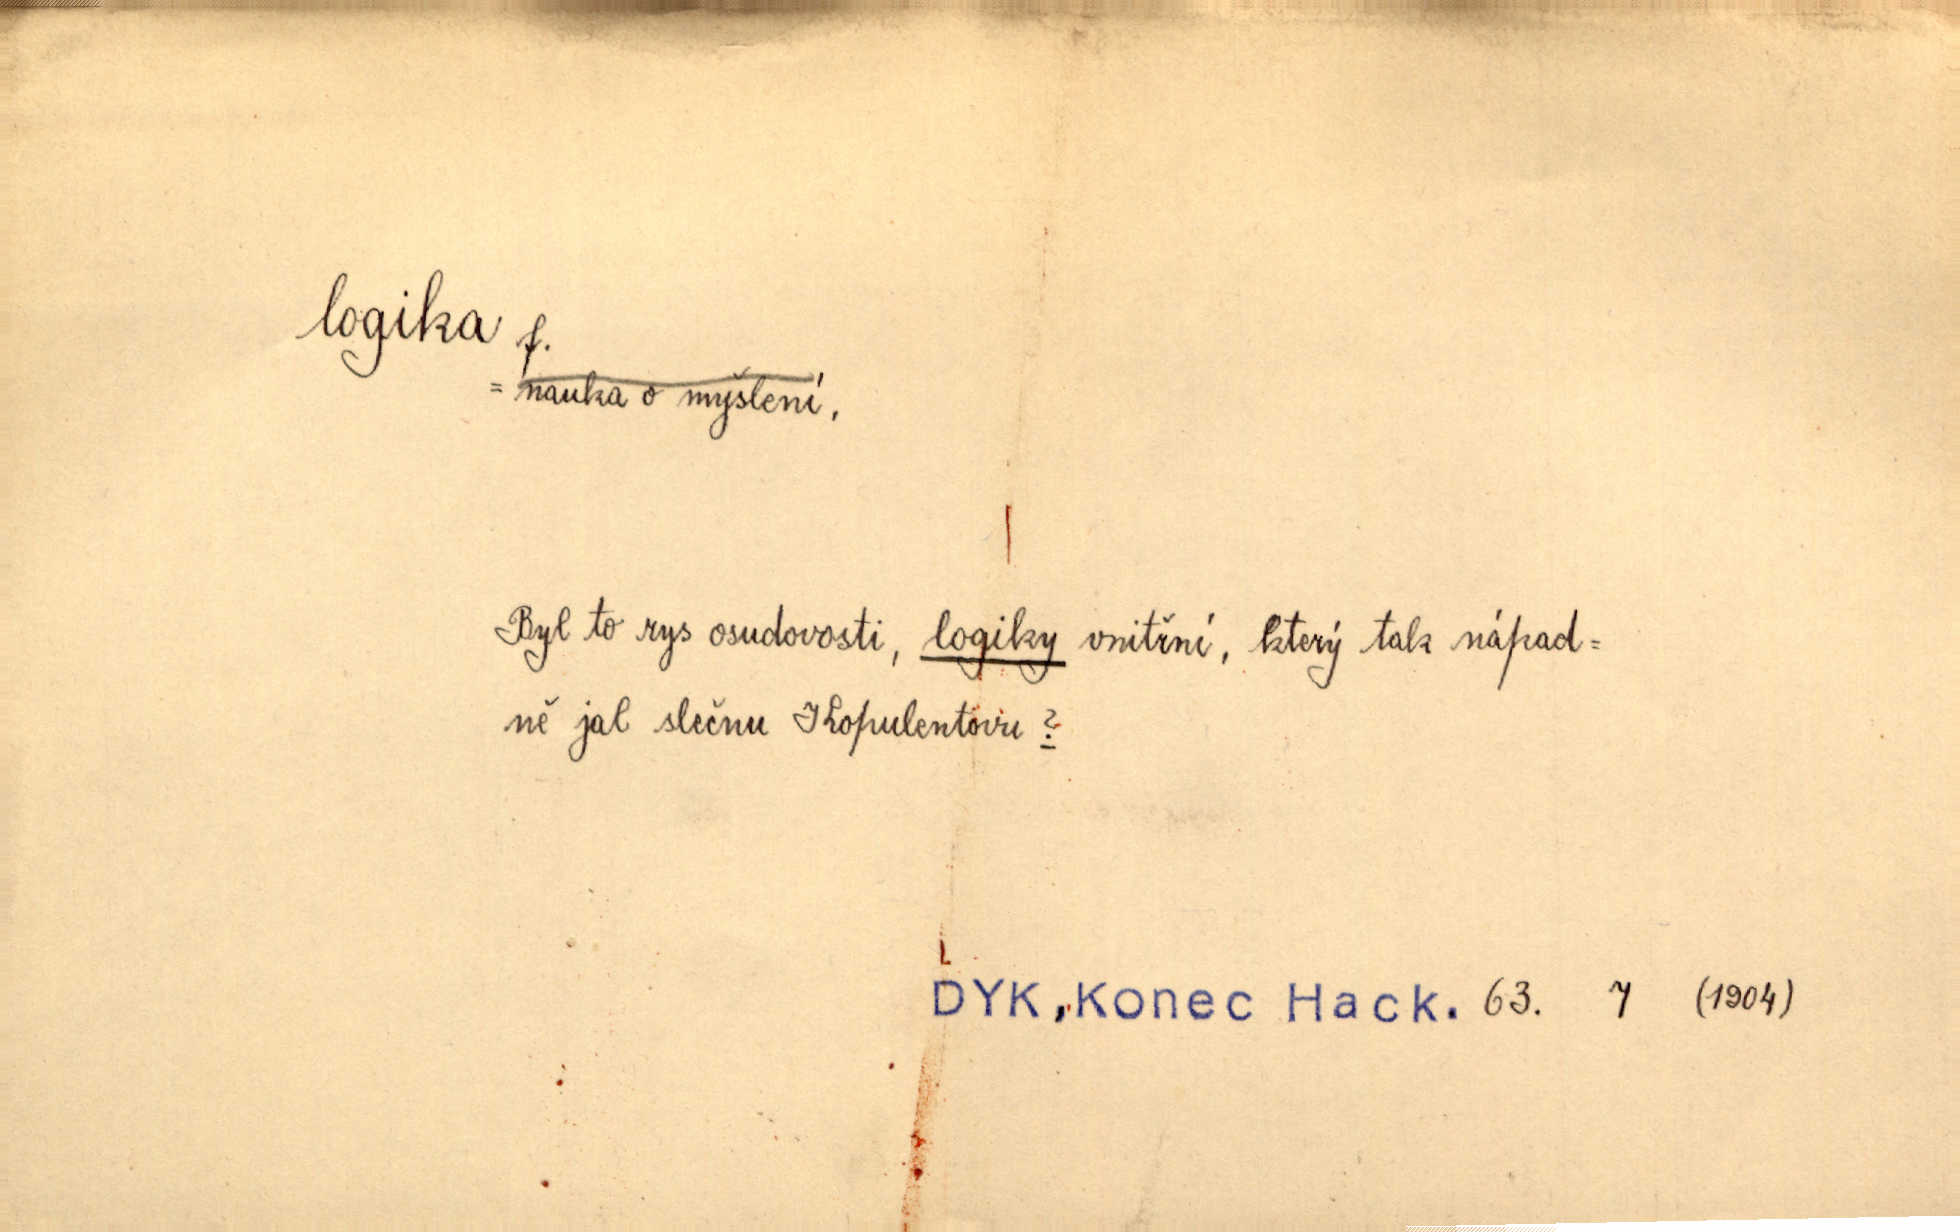 logika f.
= nauka o myšlení,
Byl to rys osudovosti, logiky vnitřní, který tak nápad=
ně jal slečnu Kopulentovu ?
DYK, Konec Hack. 63. 7 (1904)